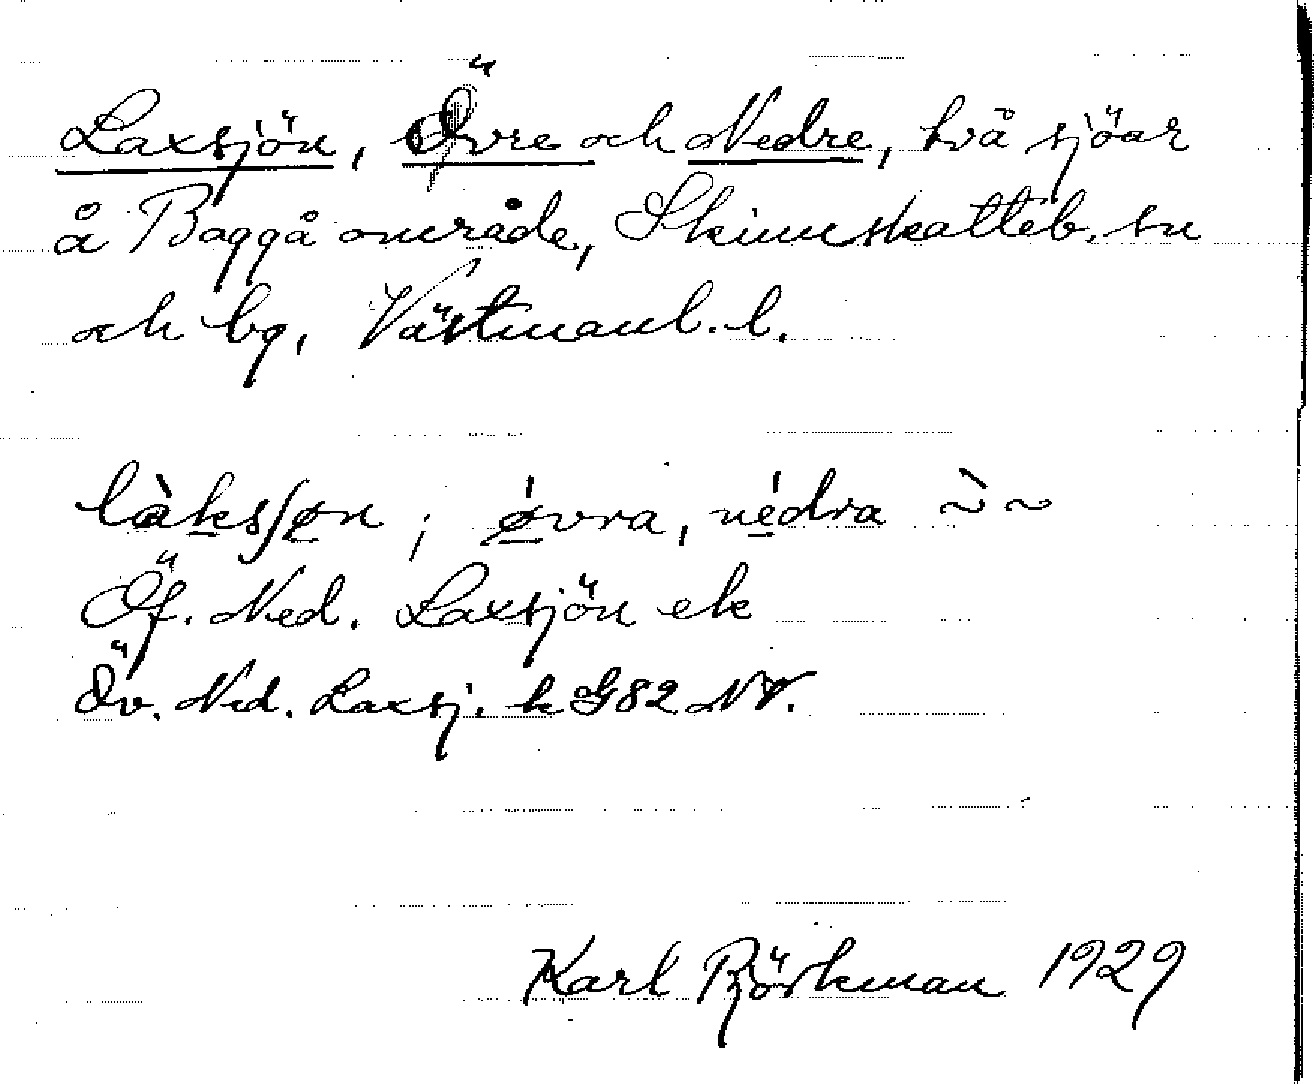 Laxsjön, Övre och Nedre, två sjöar
å Baggå område, Skinnskatteb. sn
och bg, Västmanl. l.
làksʃøn ; øvra, nedra ~̀ ~
Öf. Ned. Laxsjön ek
Öv. Ned. Laxsj. k G82 NV.
Karl Björkman 1929